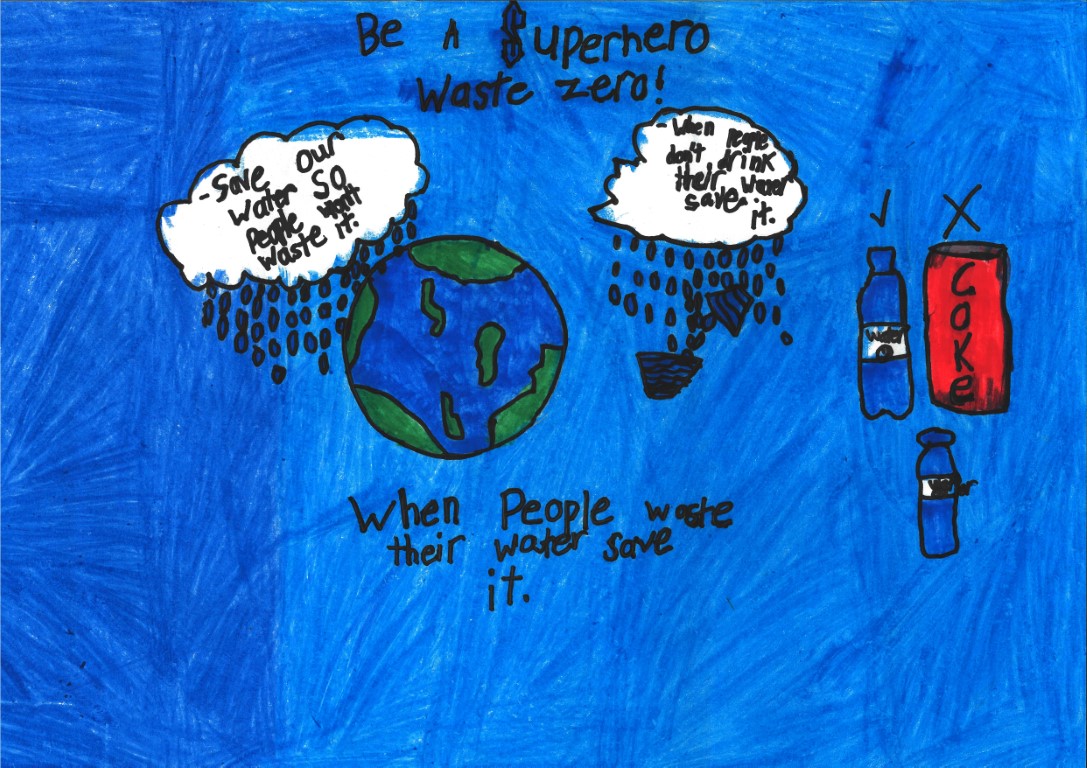 Be A Superhero
Waste zero!
- Save our
water so
people
waste it.
- When people
don't drink
their water
save
it.
Water
Coke
When People waste
their water save
it.